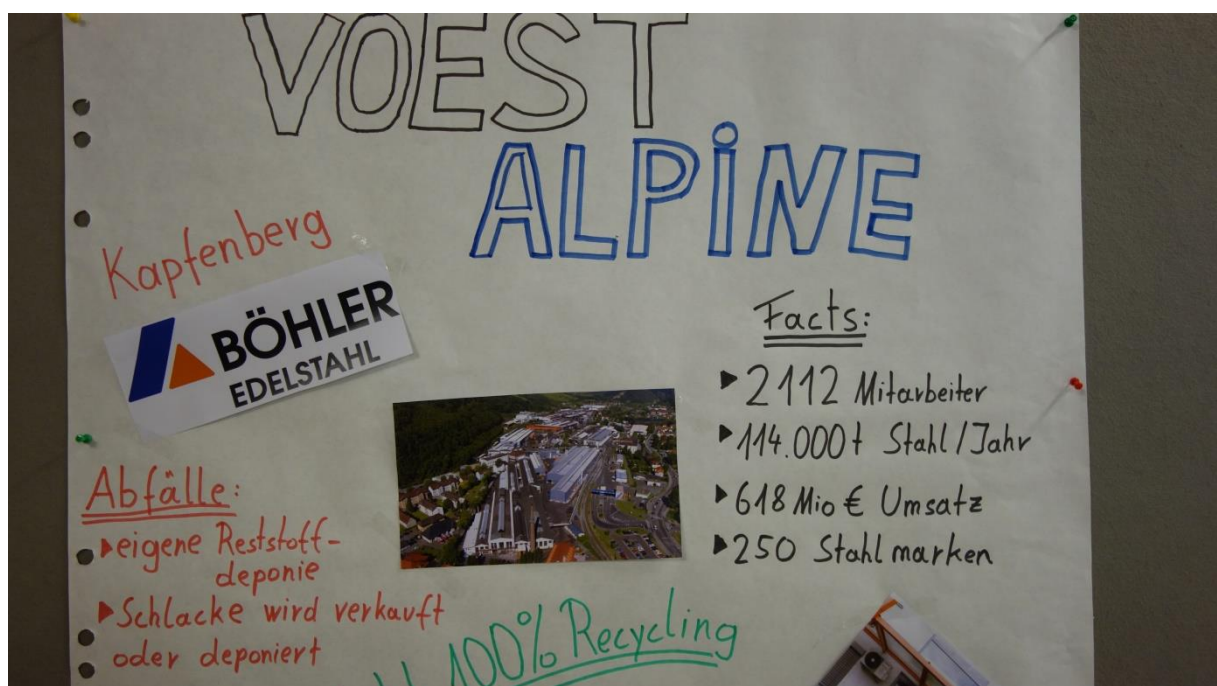 VOEST
ALPiNE
Kapfenberg
BÖHLER
EDELSTAHL
Facts:
▶2112 Mitarbeiter
▶114.000t Stahl/Jahr
▶618 Mio € Umsatz
▶250 Stahlmarken
Abfälle:
▶eigene Reststoff-
deponie
▶Schlacke wird verkauft
oder deponiert
100% Recycling